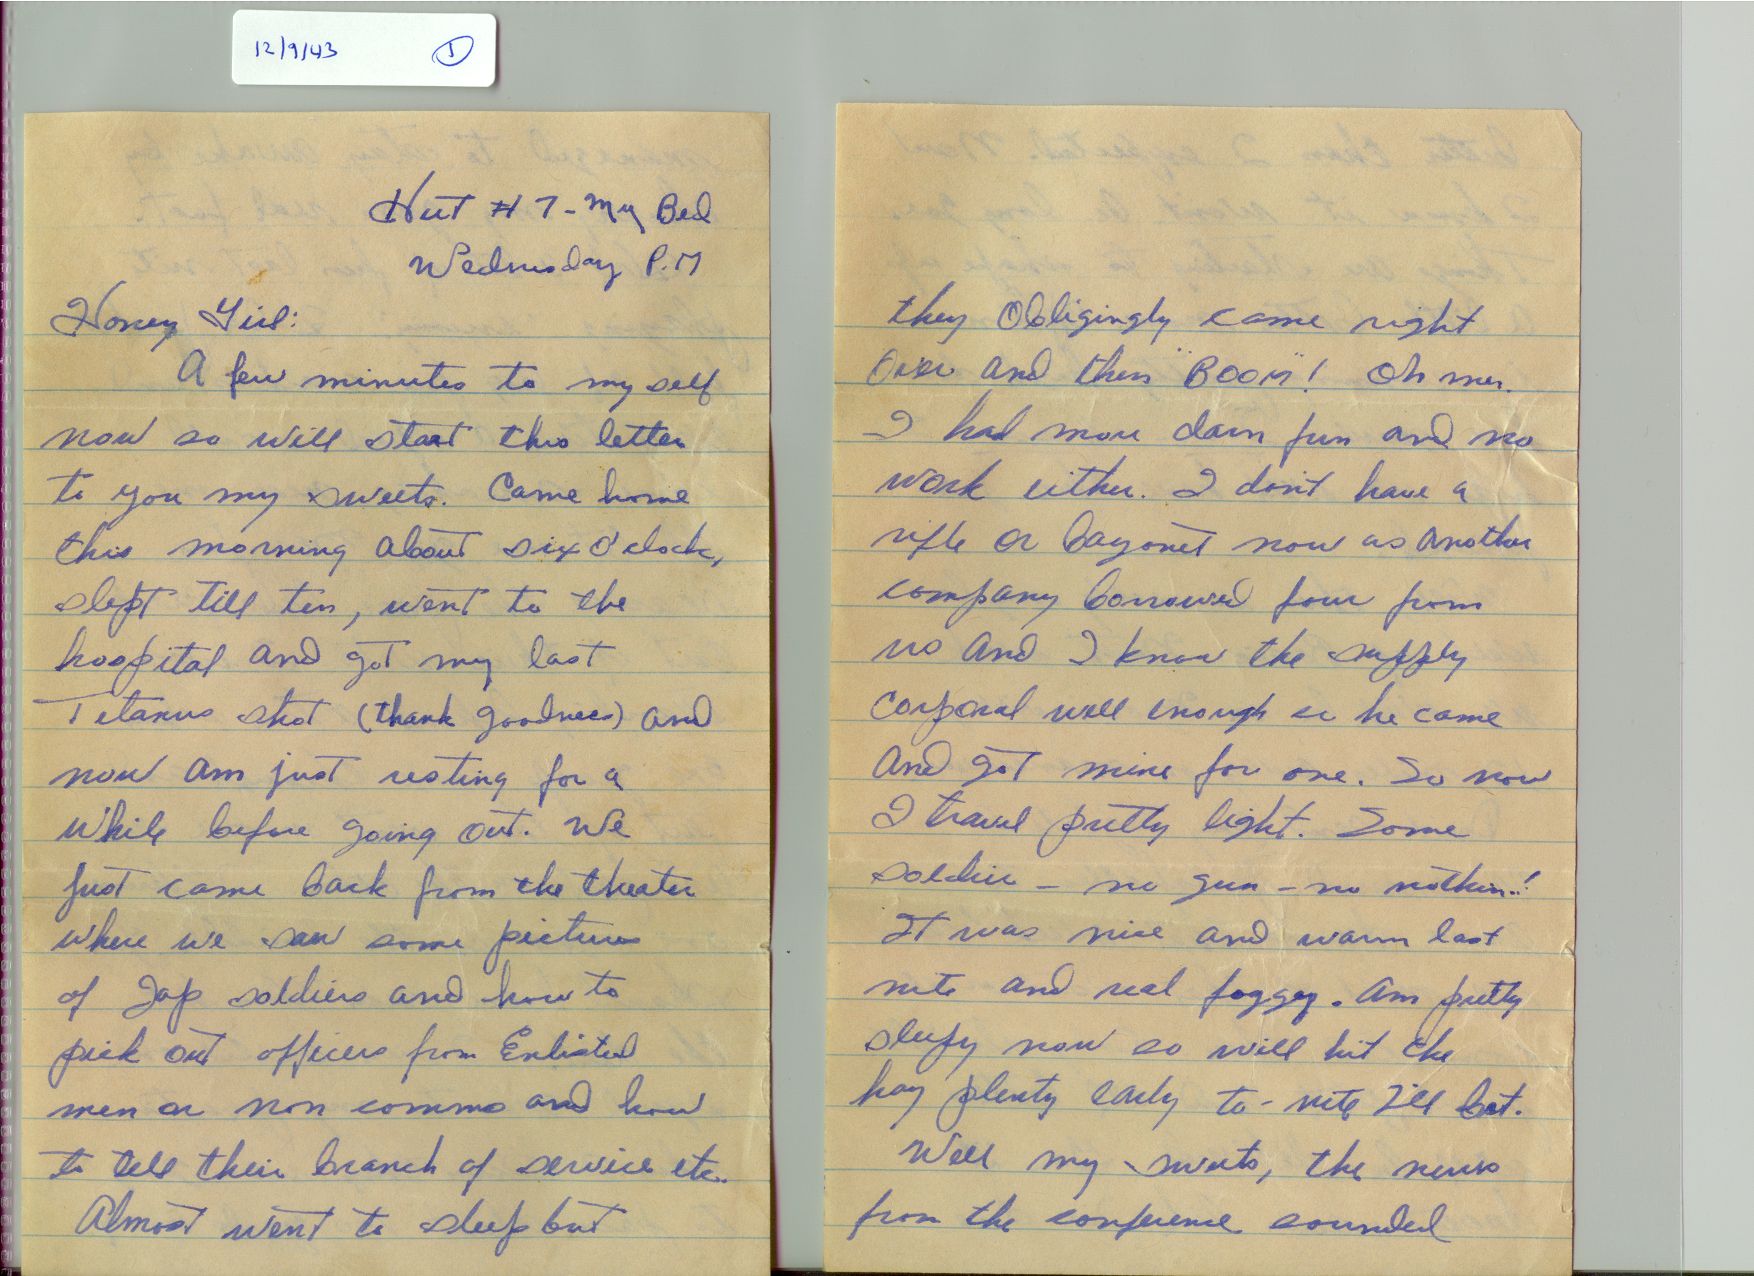 12/9/43 1
Hut # 7 - My Bed
Wednesday P.M
Honey Girl:
A few minutes to my self
now so will start this letter
to you my sweets. Came home
this morning about six O'clock,
slept till ten, went to the
hospital and got my last
Tetanus shot (thank goodness) and
now am just resting for a
while before going out. We
just came back from the theater
where we saw some pictures
of Jap soldiers and how to
pick out officers from Enlisted
men or non comms and how
to tell their branch of service etc.
Almost went to sleep but
they Obligingly came right
over and then "BOOM"! Oh me.
I had more darn fun and no
work either. I don't have a
rifle or bayonet now as another
company borrowed four from
us and I know the supply
Corporal well enough so he came
and got mine for one. So now
I travel pretty light. Some
soldier - no gun - no nothin..!
It was nice and warm last
nite and real foggy. Am pretty
sleepy now so will hit the
hay plenty early to-nite I'll bet.
Well my sweets, the news
from the conference sounded